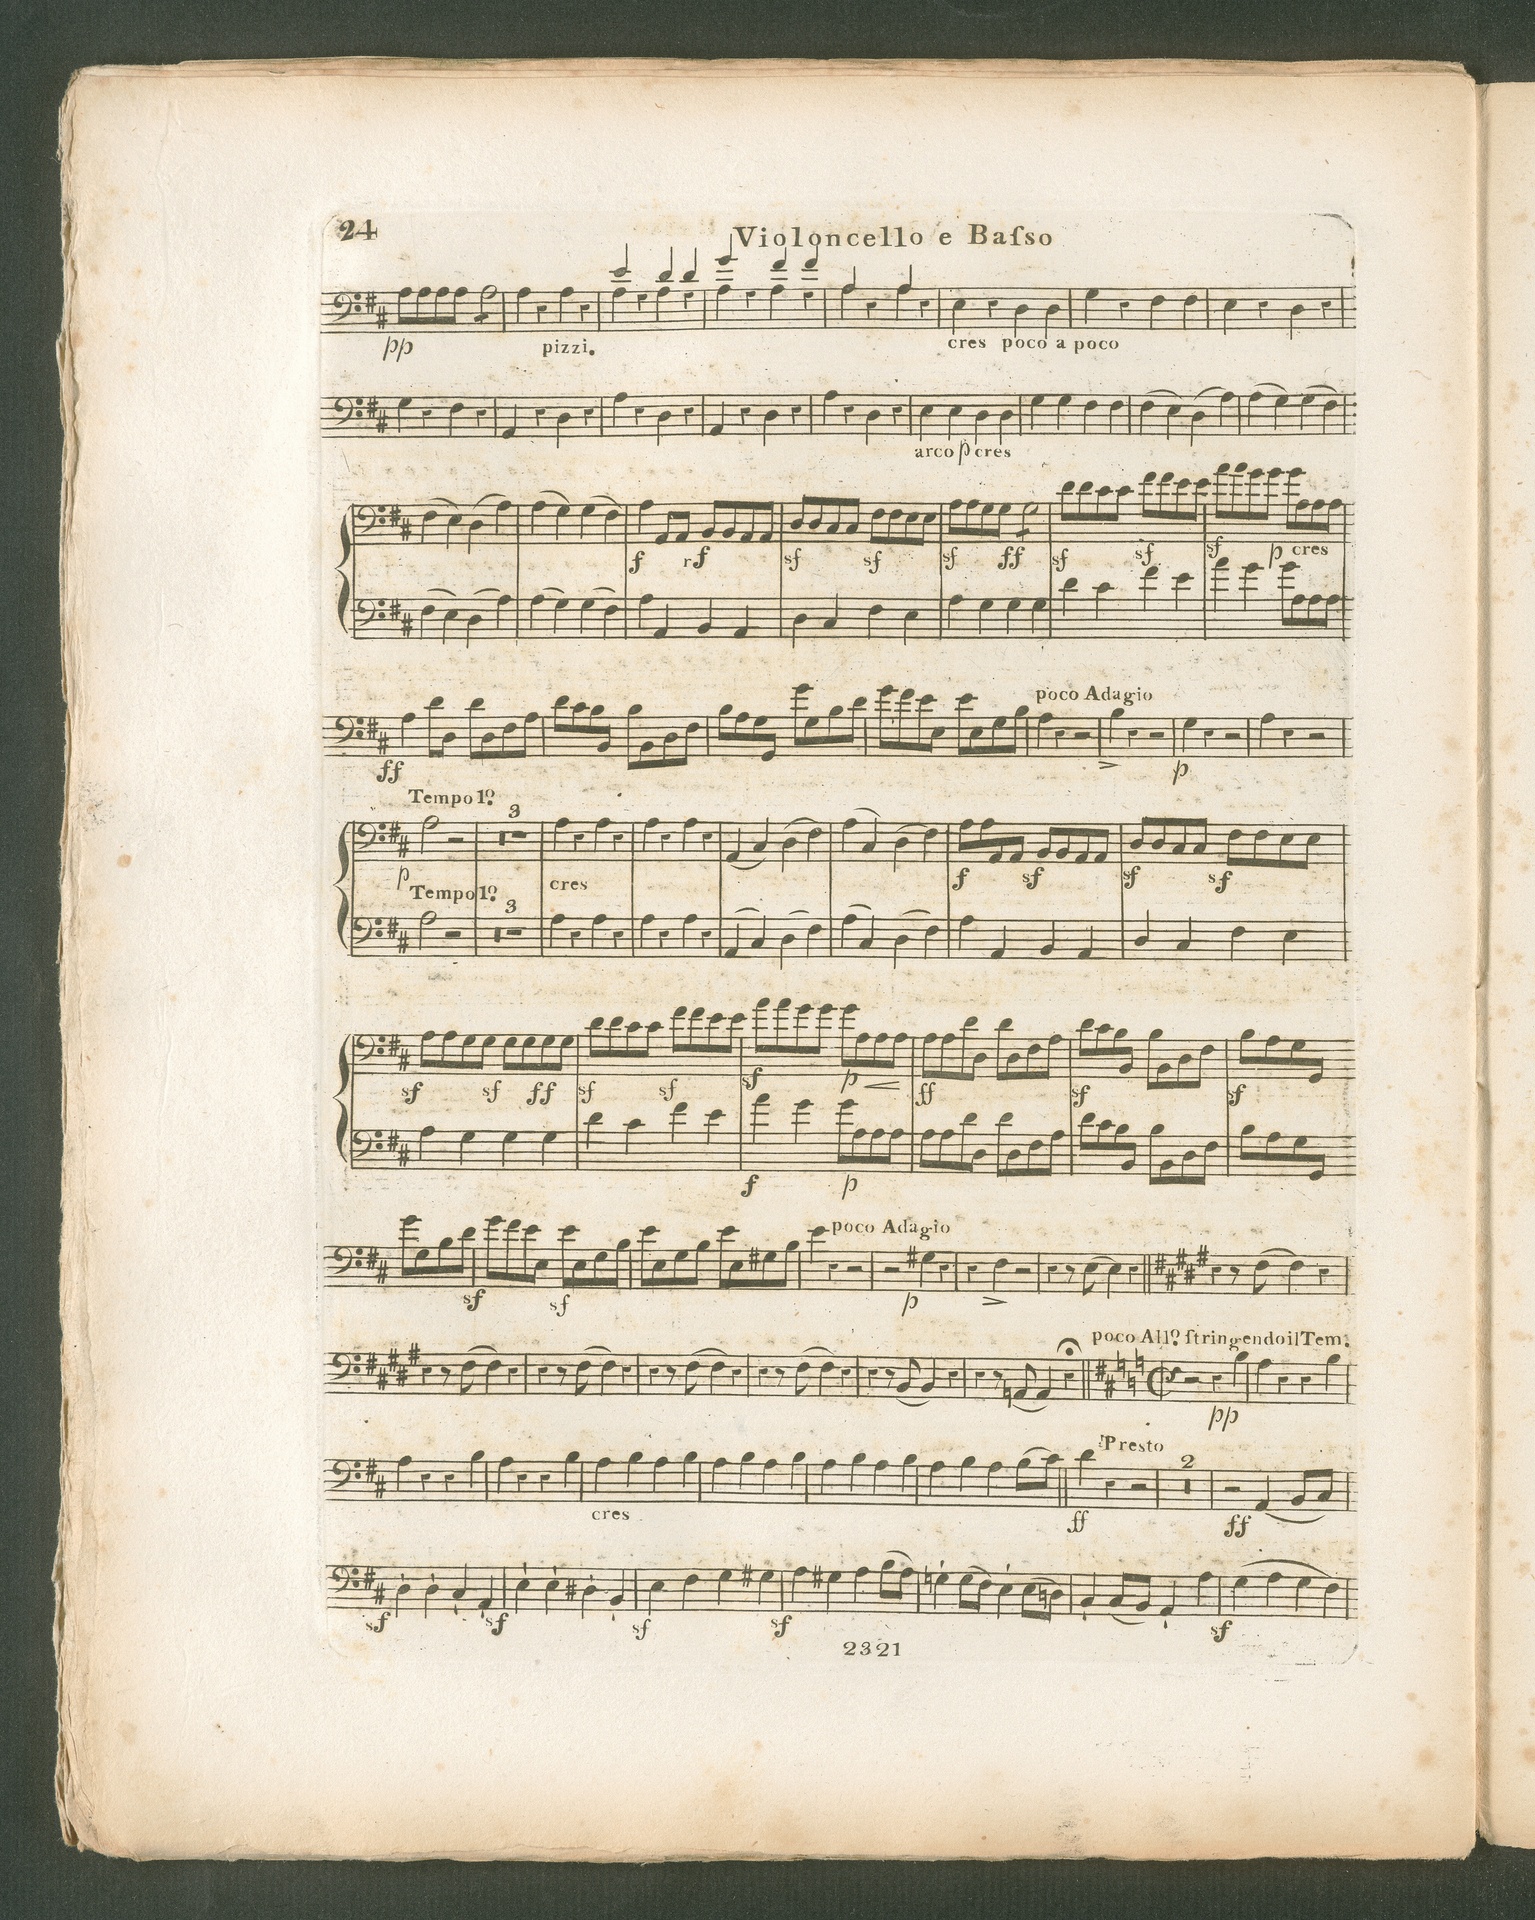 24
Violoncello e Baſso
pp pizzi. cres poco a poco
arco p cres
f rf sf sf sf ff sf sf sf p cres
poco Adagio
ff > p
Tempo 1º.
3
p cres f sf sf sf
Tempo 1º.
3
sf sf ff sf sf sf p ff sf sf
f p
poco Adagio
sf sf p >
poco Allº. ſtringendo il Tem.
pp
Presto
2
cres ff ff
sf sf sf sf sf
2321